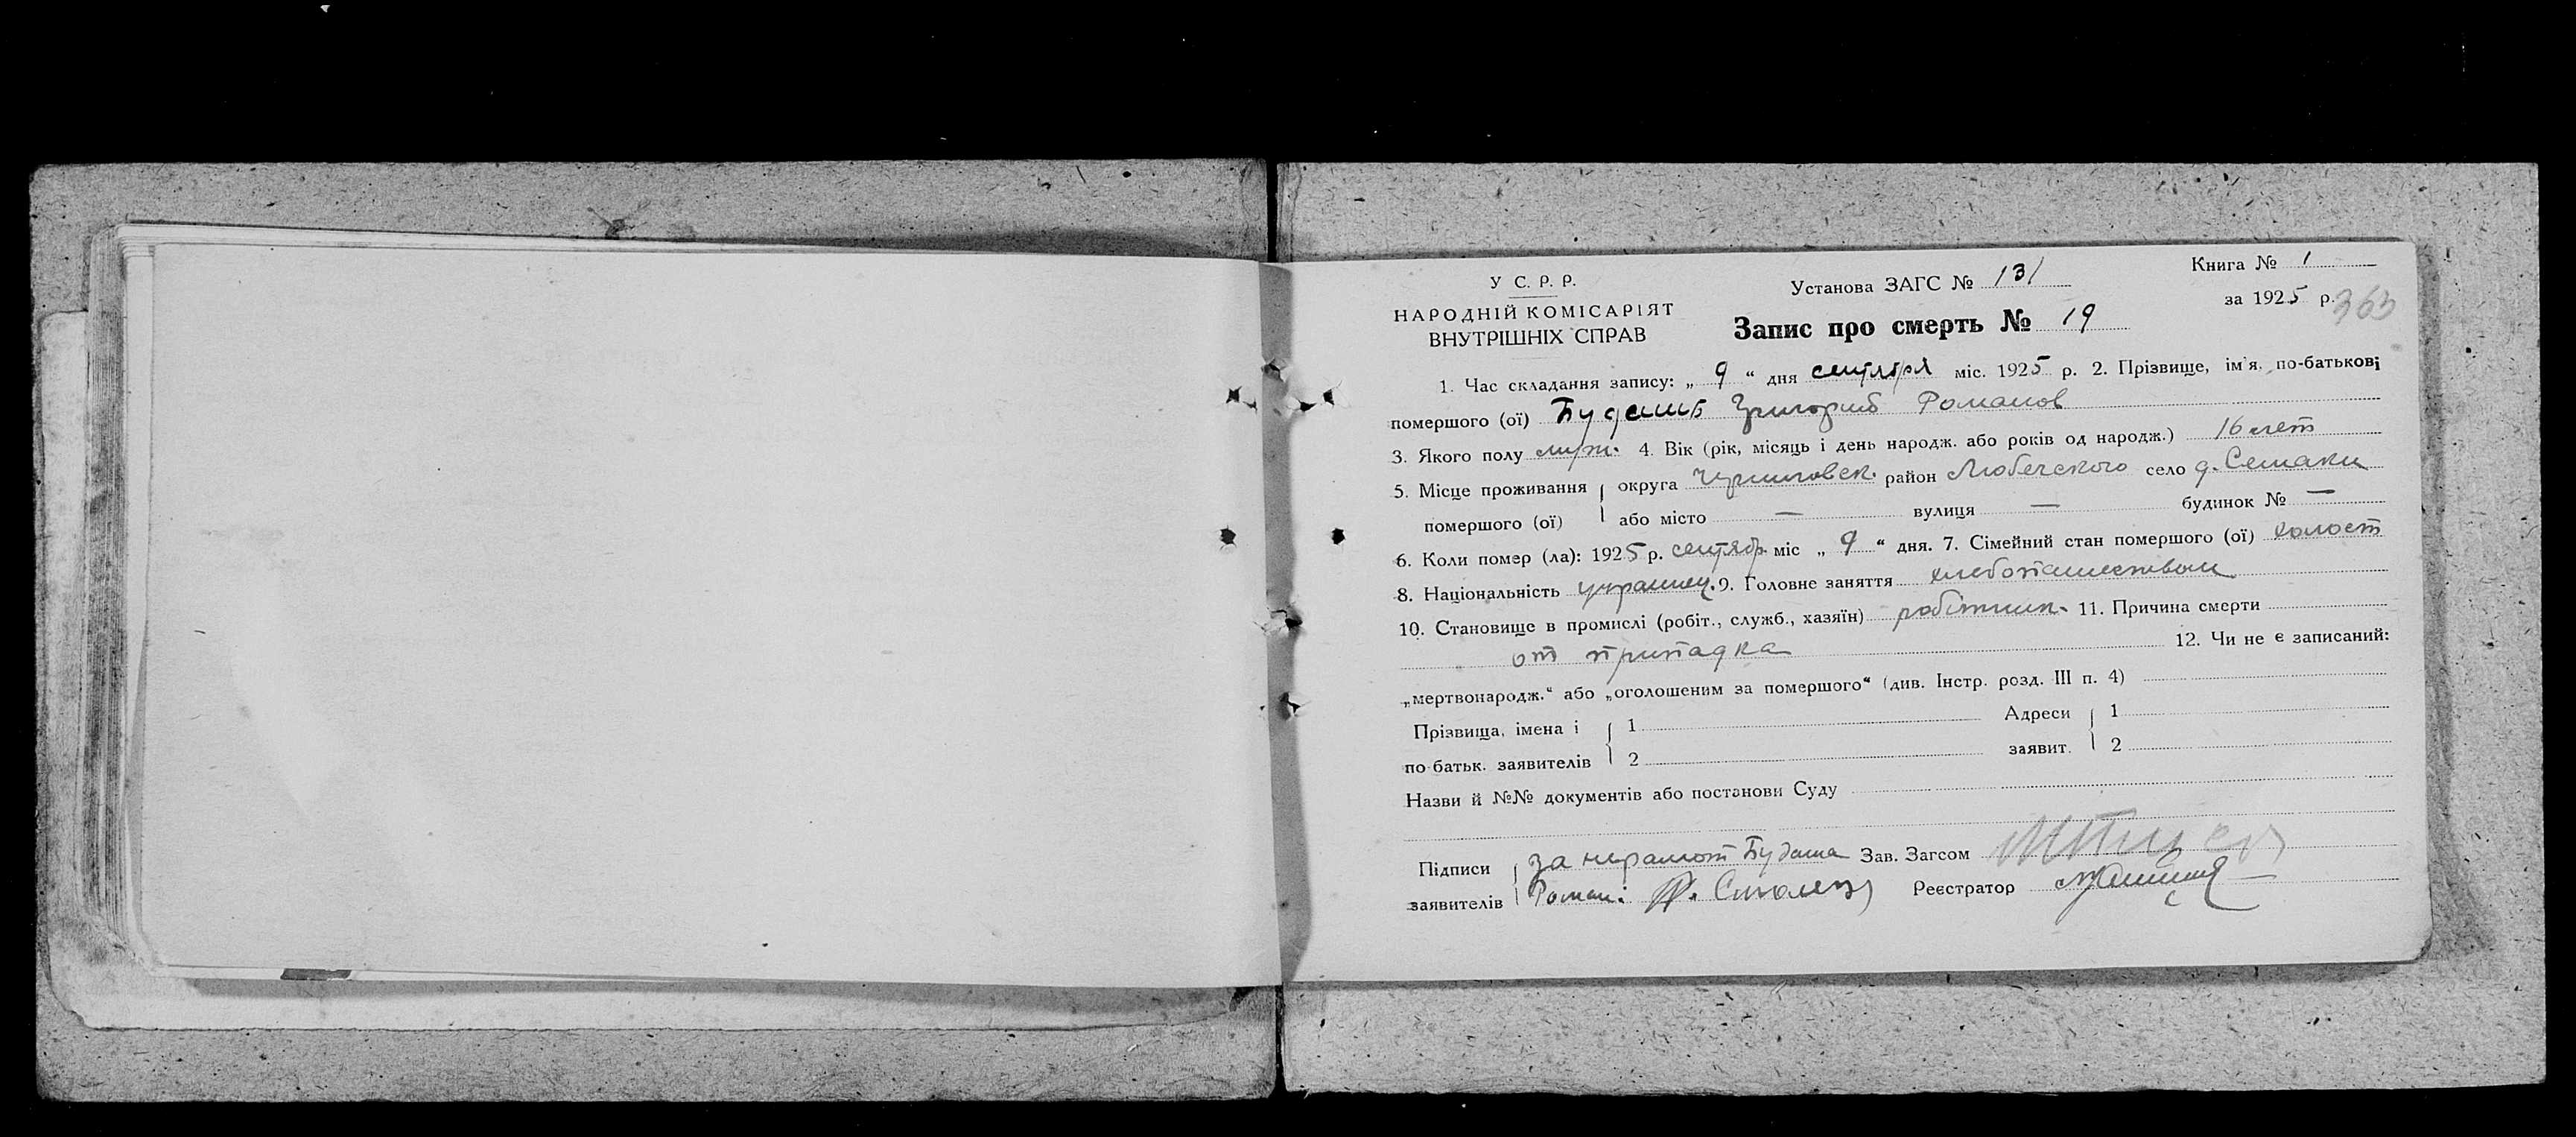 У С. Р. Р.
НАРОДНІЙ КОМІСАРІЯТ
ВНУТРІШНІХ СПРАВ
Установа ЗАГС № 131
Книга № 1
за 1925 р. 363
Запис про смерть № 19
1. Час складання запису: „ 9 “ дня сентября міс. 1925 р. 2. Прізвище, ім'я, по-батькові
помершого (ої) Григорий Романов
3. Якого полу муж. 4. Вік (рік, місяць і день народж. або років од народж.) 16 лет
5. Місце проживання округа Черниговск. район Любечского село д. Семаки
помершого (ої) або місто — вулиця — будинок № —
6. Коли помер (ла): 1925 р. сентябр. міс „ 9 “ дня. 7. Сімейний стан помершого (ої) холост
8. Національність украинец. 9. Головне заняття хлебопашеством
10. Становище в промислі (робіт., служб., хазяїн) робітник. 11. Причина смерти
от припадка 12. Чи не є записаний:
„мертвонародж.“ або „оголошеним за помершого“ (див. Інстр. розд. III п. 4)
Прізвища, імена і 1 Адреси 1
по батьк. заявителів 2 заявит. 2
Назви й №№ документів або постанови Суду
Підписи за неграмот Будаша Зав. Загсом
заявителів Роман. Реєстратор